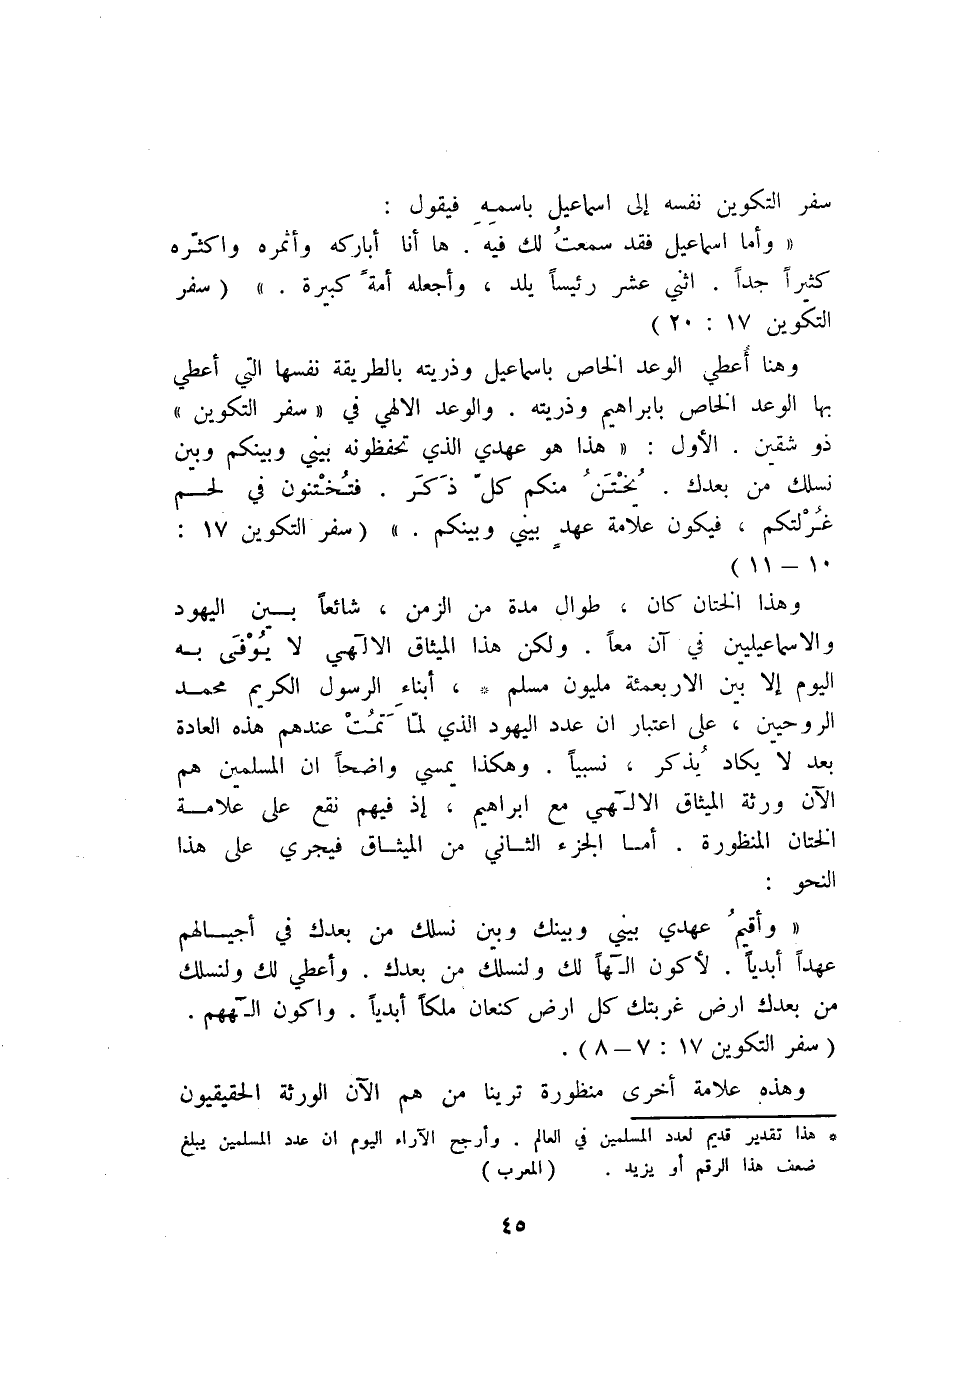 سفر التكوين نفسه إلى اسماعيل باسمِهِ فيقول :
« وأما اسماعيل فقد سمعتُ لك فيه . ها أنا أباركه وأثمره واكثّره
كثيراً جداً . اثني عشر رئيساً يلد ، وأجعله أمةً كبيرة . » ( سفر
التكوين ١٧ : ٢٠ )
وهنا أُعطي الوعد الخاص باسماعيل وذريته بالطريقة نفسها التي أعطي
بها الوعد الخاص بابراهيم وذريته . والوعد الالهي في « سفر التكوين »
ذو شقين . الأول : « هذا هو عهدي الذي تحفظونه بيني وبينكم وبين
نسلك من بعدك . يُخْتَنُ منكم كلّ ذَكَر . فتُختنون في لحم
غُرْلتكم ، فيكون علامة عهدٍ بيني وبينكم . » ( سفر التكوين ١٧ :
١٠ – ١١ )
وهذا الختان كان ، طوال مدة من الزمن ، شائعاً بين اليهود
والاسماعيليين في آن معاً . ولكن هذا الميثاق الالٓهي لا يُوْفَى به
اليوم إلا بين الاربعمئة مليون مسلم * ، أبناءِ الرسول الكريم محمد
الروحيين ، على اعتبار ان عدد اليهود الذي لمّا تَمُتْ عندهم هذه العادة
بعد لا يكاد يُذكر ، نسبياً . وهكذا يمسي واضحاً ان المسلمين هم
الآن ورثة الميثاق الالٓهي مع ابراهيم ، إذ فيهم نقع على علامة
الختان المنظورة . أما الجزء الثاني من الميثاق فيجري على هذا
النحو :
« وأقيمُ عهدي بيني وبينك وبين نسلك من بعدك في أجيالهم
عهداً أبدياً . لأكون الٓهاً لك ولنسلك من بعدك . وأعطي لك ولنسلك
من بعدك ارض غربتك كل ارض كنعان ملكاً أبدياً . واكون الٓههم .
( سفر التكوين ١٧ : ٧ – ٨ ) .
وهذه علامة أخرى منظورة ترينا من هم الآن الورثة الحقيقيون
* هذا تقدير قديم لعدد المسلمين في العالم . وأرجح الآراء اليوم ان عدد المسلمين يبلغ
ضعف هذا الرقم أو يزيد . ( المعرب )
٤٥